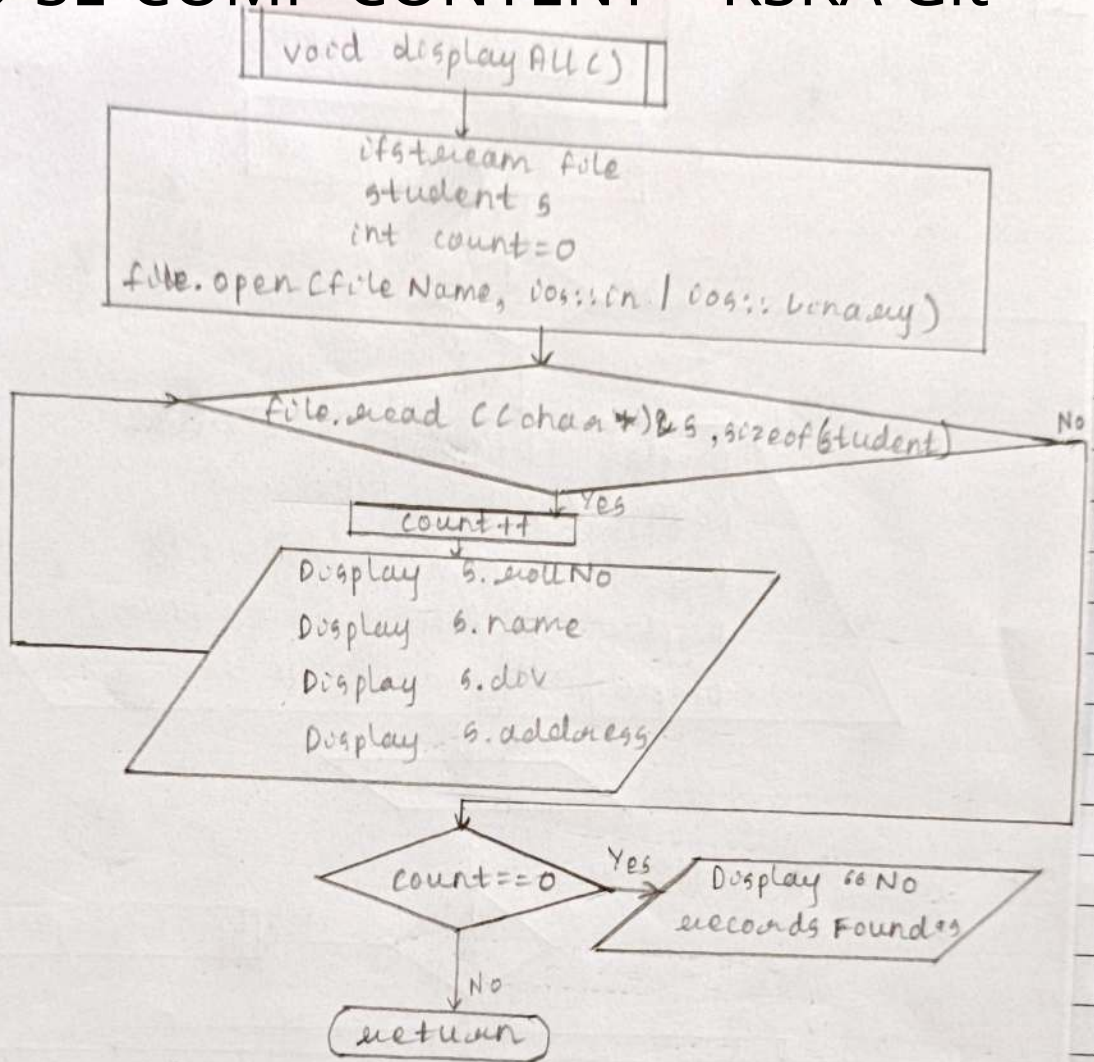 SE COMP CONTENT - KSKA Git
void displayAll()
ifstream file
student s
int count=0
file.open(fileName, ios::in | ios::binary)
file.read ((char *)& s, sizeof(student)
No
Yes
count++
Display s.rollNo
Display s.name
Display s.div
Display s.address
count==0
Yes
Display "No
records Found"
No
return